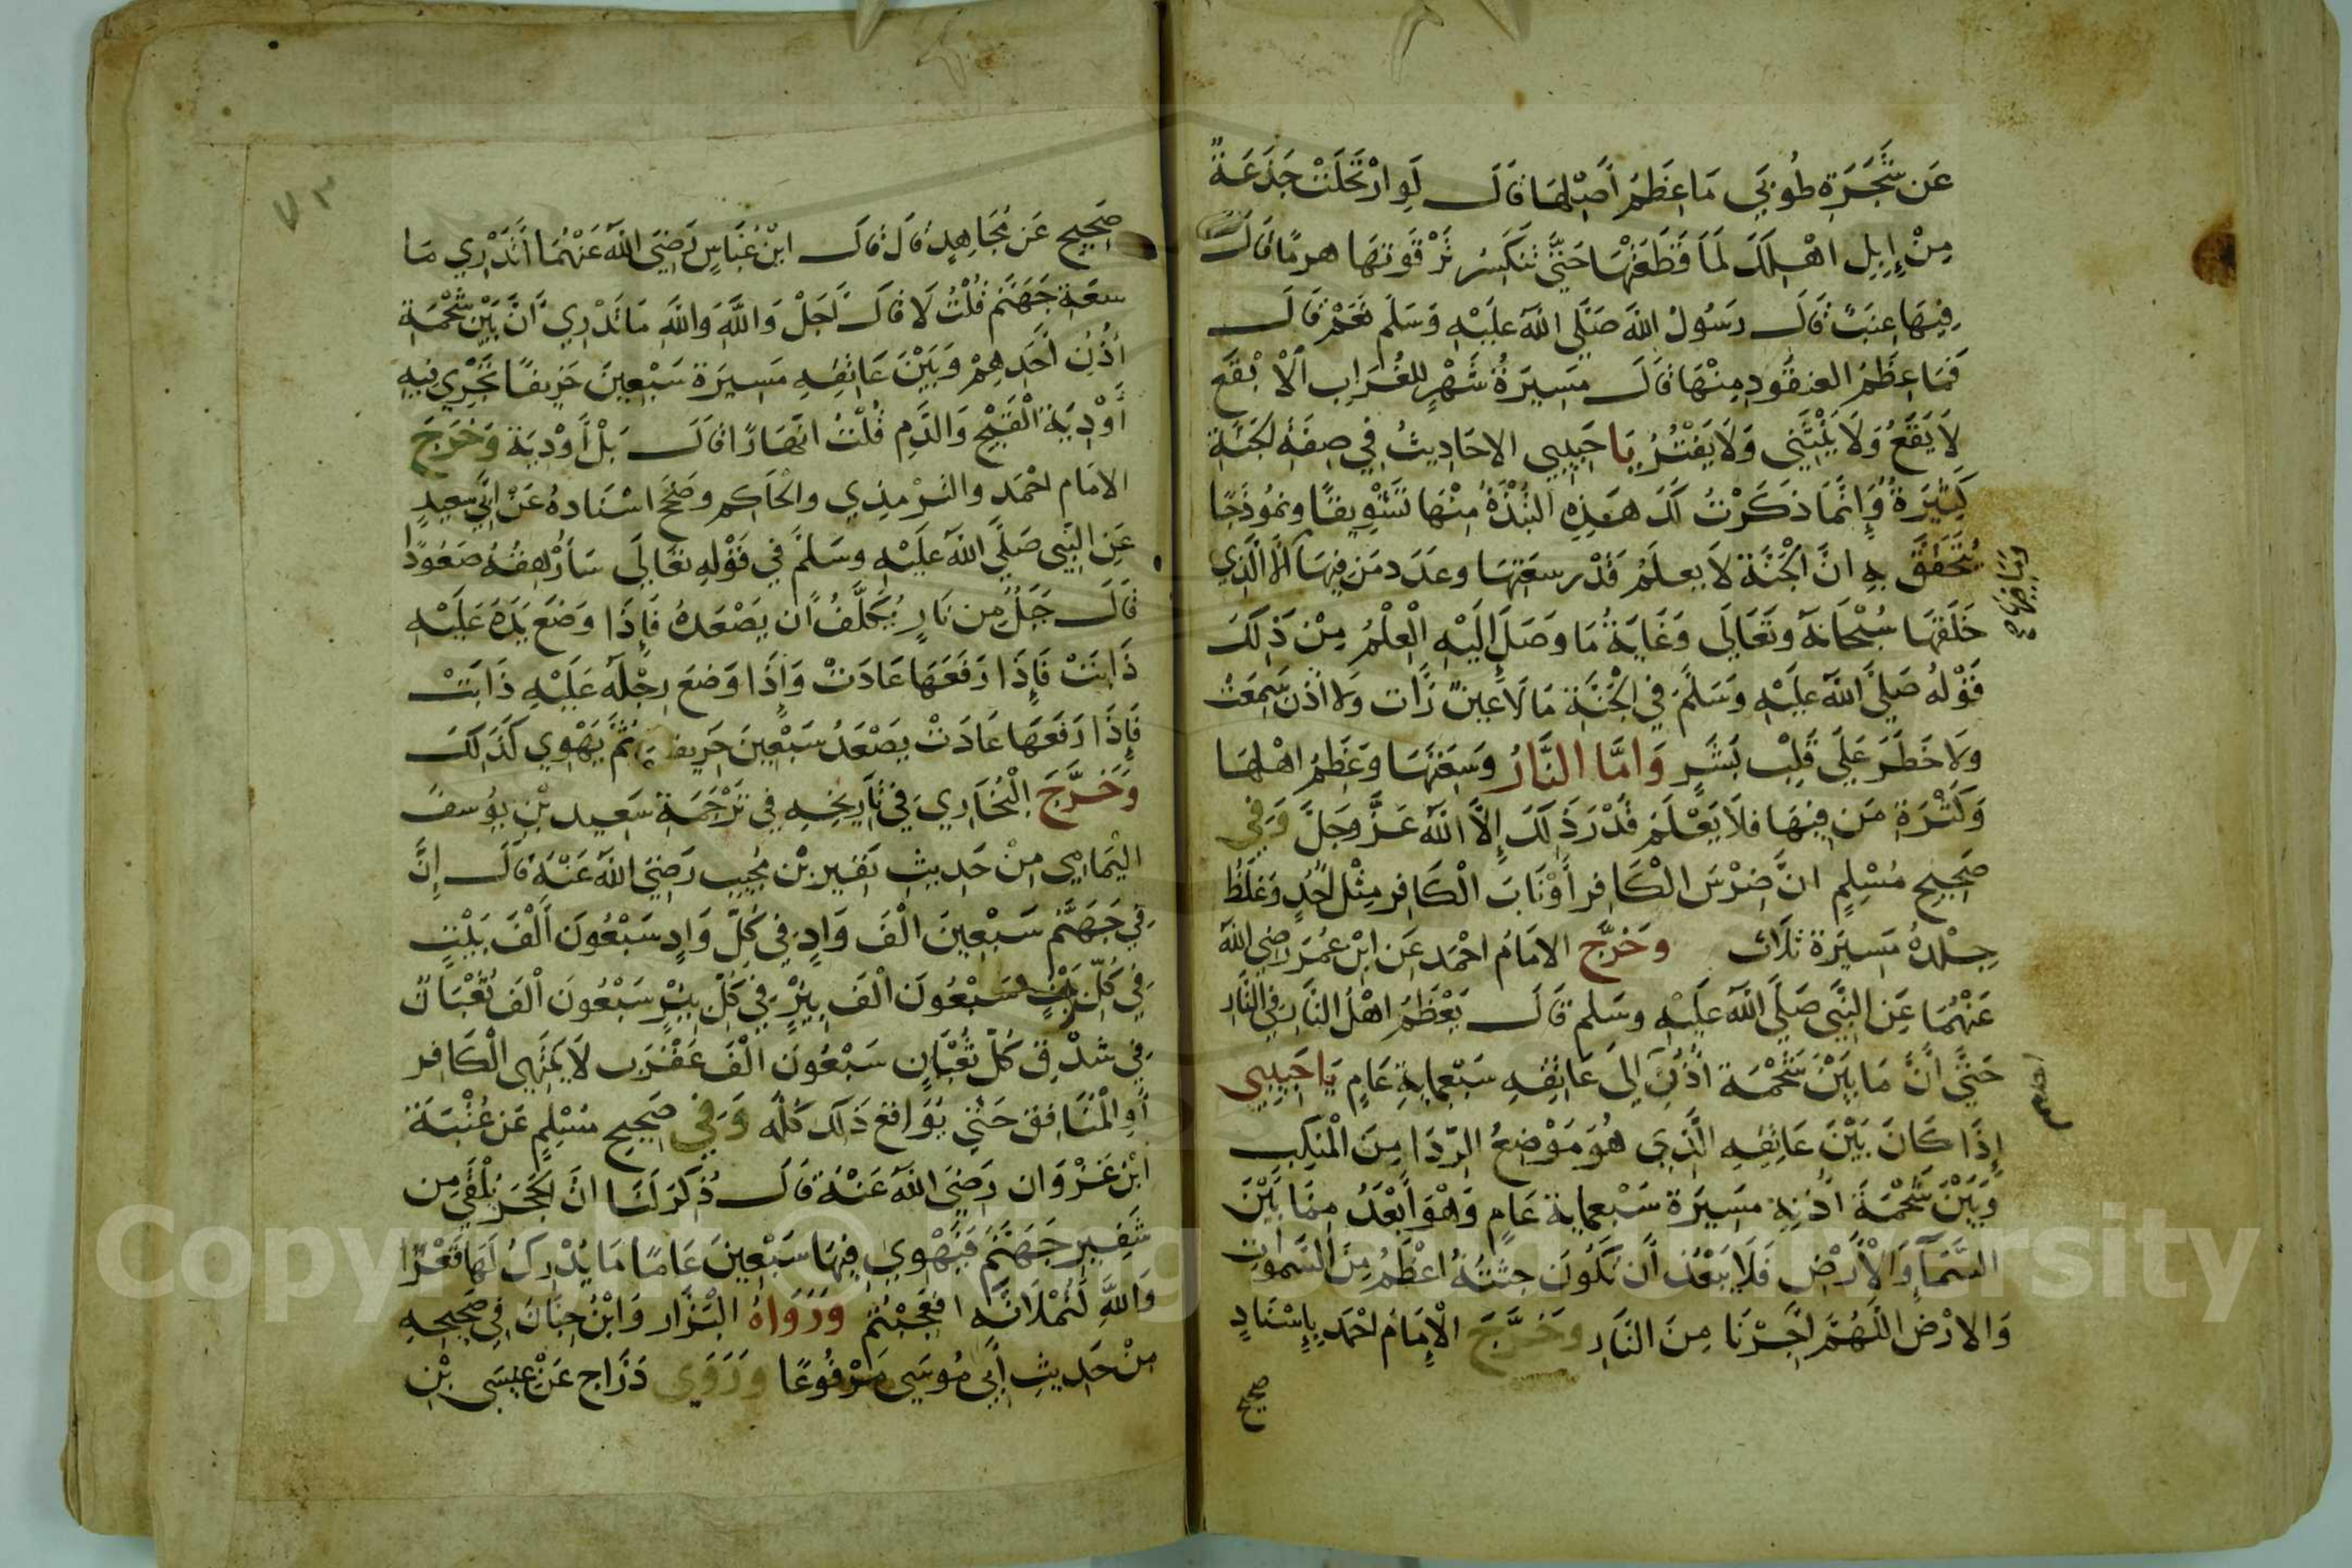 عَن شَجَرَةِ طُوبَي مَا عِظَمُ أَصْلِهَا قَالَ لَوِ ارْتَحَلَتْ جَذَعَةً
مِنْ إِبِلِ اهْلِكَ لَمَا قَطَعَتْهَا حَتَّي تَنكَسِرَ تَرْقُوَتهَا هرمًا قَالَ
فِيهَا عِنَبٌ قَالَ رَسُولُ اللهِ صَلَّى اللهُ عَلَيْهِ وَسَلَّم نَعَمْ قَالَ
فَمَا عِظَمُ العنقُودِ مِنْهَا قَالَ مَسِيرَةُ شَهْرٍ للغُرَابِ الْأَبْقَع
لَا يَقَعُ وَلَا يَنْثَنِي وَلَا يَفْتُرُ يَا حَبِيبِي الاحَادِيثُ فِي صِفَةِ الجَنَّةِ
كَثِيرَةٌ وَإِنَّمَا ذكَرْتُ لَكَ هَذِهِ النُّبْذَةُ مِنْهَا تَشْوِيقًا ونمُوذَجًا
يُتَحَقَّقُ بِهِ انَّ الْجَنَّةَ لَا يعلَمُ قَدْرَ سعَتِهَا وعَدَد مَن فِيهَا الَّا الَّذِي
خَلَقَهَا سُبْحَانَهُ وتَعَالَي وَغَايَةُ مَا وَصَلَ إِلَيْهِ الْعِلْمُ مِنْ ذَلِكَ
قَوْلهُ صَلَّى اللهُ عَلَيْهِ وَسَلَّمَ فِي الْجَنَّةِ مَا لَا عَيْنٌ رَأَت وَلا اذُنٌ سَمِعَتْ
ولَا خَطَرَ عَلَي قَلْبِ بَشَرٍ وَامَّا النَّارُ وَسِعَتهَا وَعِظَمُ اهْلِهَا
وَكَثْرَةِ مَن فِيهَا فلَا يَعْلَم قَدْرَ ذَلِكَ إِلَّا اللهُ عَزَّ وجَلَّ وَفِي
صَحِيحِ مُسْلِمٍ انَّ ضِرْسَ الْكَافِرِ أَوْ نَابَ الْكَافِرِ مِثْل أُحُدٍ وَغِلَظُ
جِلْدهُ مَسِيرَة ثَلَاثٍ وخَرَّج الامَامُ احْمَد عَن ابْنِ عُمَرَ رضِي اللهُ
عَنْهُمَا عَنِ النَّبِي صَلَّى اللهُ عَلَيْهِ وَسَلم قَالَ يَعْظُمُ اهْلُ النَّارِ فِي النَّارِ
حَتَّي انَّ مَا بَيْنَ شَحْمَة اذُنِ الي عَاتِقِهِ سَبْعمايةِ عَامٍ يَا حَبِيبِي
إِذَا كَانَ بَيْنَ عَاتِقِهِ الَّذِي هُوَ مَوْضِعُ الرِّدَا مِنَ الْمَنكِبِ
وَبَيْنَ شَحْمَةَ اُذُنِهِ مَسِيرَة سَبْعمايةِ عَامٍ وَهُوَ أَبْعَدُ مِمَّا بَيْنَ
السَّمَآءِ وَالْأَرْضِ فَلَا يَبْعُدُ أَن تَكُونَ جثتُهُ اعْظَمُ مِنَ السَّمَوَاتِ
وَالارْض اللَّهُمَّ أَجِرْنَا مِنَ النَّارِ وخَرَّجَ الْإِمَامُ احْمَد بِإِسْنَادٍ
صحيح
٧٣
صَحِيحٍ عَن مُجَاهِدٍ قَالَ قَالَ ابْنُ عَبَّاسٍ رَضِيَ اللهُ عَنْهُمَا أَتَدْرِي مَا
سعَة جَهَنَّم قُلْتُ لَا قَالَ أَجَلْ وَاللهِ وَاللهِ مَا تَدْرِي أَنَّ بَيْنَ شَحْمَةِ
أُذُنِ أَحَدِهِمْ وَبَيْنَ عَاتِقِهِ مَسِيرَة سَبْعِينَ خَرِيفًا تَجْرِي فِيهِ
أَوْدِيَة الْقَيْحِ وَالدَّمِ قُلْتُ انهَارًا قَالَ بَلْ أَوْدِيَة وَخَرَجَ
الامَام احْمَد والتِّرْمِذِي والحَاكِم وصَحَّحَ اسْنَادهُ عَنْ أَبِي سَعِيدٍ
عَنِ النَّبِي صَلَّى اللهُ عَلَيْهِ وسَلَّم فِي قَوْلِهِ تعَالَي سَأُرْهِقُهُ صَعُودًا
قَالَ جَبَلٌ مِن نَارٍ يُكَلَّفُ ان يَصْعَدهُ فَإِذَا وَضَعَ يَدَهُ عَلَيْهِ
ذَابَتْ فَإِذَا رَفَعَهَا عَادَتْ وَإِذَا وَضَعَ رِجْلَهُ عَلَيْهِ ذَابَتْ
فَإِذَا رَفَعَهَا عَادَتْ يَصْعَدُ سَبْعِينَ خَرِيفًا ثُمَّ يَهْوِي كَذَلِكَ
وَخَرَّجَ الْبُخَارِي فِي تَارِيخِهِ فِي تَرْجَمَةِ سَعِيد بْنِ يُوسفَ
اليَمَامِي مِنْ حَدِيثِ نُفَيْرِ بْن مُجِيبٍ رَضِيَ اللهُ عَنْهُ قَالَ إِنَّ
فِي جَهَنَّم سَبْعِينَ الْفَ وَادٍ فِي كُلِّ وَادٍ سَبْعُونَ أَلْفَ بَيْتٍ
فِي كُلِّ بَيْتٍ سَبْعُونَ الْفَ بِئْرٍ فِي كُلِّ بِئْرٍ سَبْعُونَ الْفَ ثُعْبَان
فِي شدْقِ كُلِّ ثُعْبَانٍ سَبْعُونَ الْفَ عَقْرَب لَا يَنتَهِي الْكَافِر
أَوِ الْمُنَافِق حَتَّي يُوَاقِعَ ذَلِكَ كُلَّه وَفِي صَحِيحِ مُسْلِمٍ عَن عُتْبَةَ
ابْنِ غَزْوَان رَضِيَ اللهُ عَنْهُ قَالَ ذُكِرَ لَنَا انَّ الحَجَرَ يُلْقَي مِن
شَفِيرِ جَهَنَّمَ فَيَهْوِي فِيهَا سَبْعِينَ عَامًا مَا يُدْرِكُ لَهَا قَعْرًا
وَاللهِ لَتُمْلَأنَّه افعَجِبْتُم وَرَوَاهُ البَزَّار وَابْنُ حِبَّانَ فِي صَحِيحِهِ
مِنْ حَدِيثِ أَبِي مُوسَي مَرْفُوعًا وَرَوَي دَرَّاج عَنْ عِيسَي بْنِ
Copyright © King Saud University